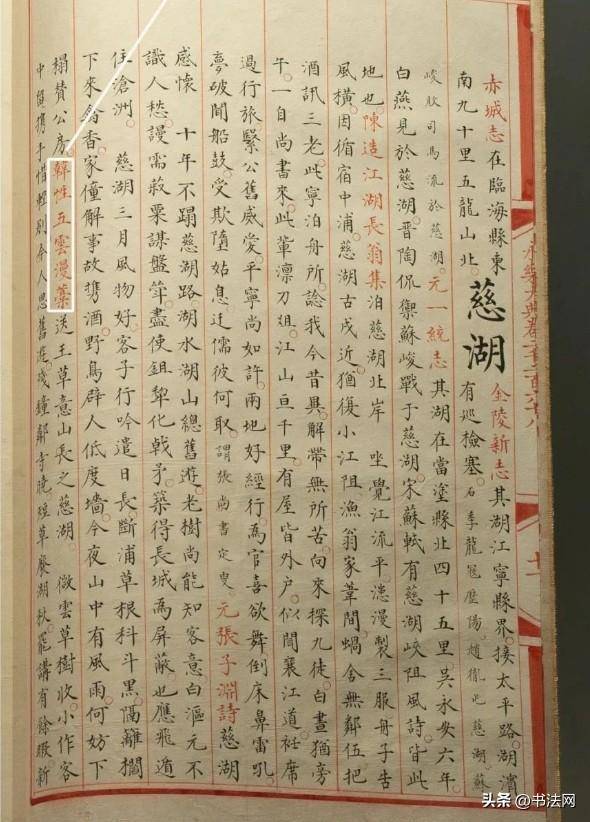 永樂大典卷二千二百六十八
赤城志在臨海縣東
南九十里五龍山北。
慈湖
金陵新志其湖江寧縣界。接太平路湖濱
有巡檢塞。石季龍冦歷陽。趙胤屯慈湖。蘇
峻敗司馬流於慈湖。元一統志其湖在當塗縣北四十五里。吳永安六年
白燕見於慈湖。晋陶侃禦蘇峻戰于慈湖。宋蘇軾有慈湖峽阻風詩。皆此
地也。陳造江湖長翁集泊慈湖北岸 坐覺江流平。漶漫製三服。舟子告
風橫。因循宿中浦。慈湖古戍近。猶復小江阻。漁翁家葦間。蝸舍無鄰伍。把
酒訊三老。此寧泊舟所。諗我今昔異。解帶無所苦。向來探九徒。白晝猶旁
午。一自尚書來。此輩凜刀俎。江山亘千里。有屋皆外户。似聞襄江道。衽席
過行旅。緊公舊威愛。平寧尚如許。兩地好經行。為官喜欲舞。倒床鼻雷吼。
夢破聞船鼓。受欺墮姑息。迂儒彼何取。謂張尚書定叟。元張子淵詩慈湖
感懷 十年不蹋慈湖路。湖水湖山總舊遊。老樹尚能知客意。白漚元不
識人愁。謾需菽粟謀盤聳。盡使鉏犁化戟矛。築得長城為屏蔽。也應飛遁
住滄洲。 慈湖三月風物好。客子行吟遣日長。斷浦草根科斗黑。隔籬攔
下來禽香。家僮解事故携酒。野鳥辟人低度墻。今夜山中有風雨。何妨下
榻賛公房。韓性五雲漫藁送王草意山長之慈湖 微雲草樹收。小作客
中留。携手惜輕别。令人思舊遊。殘鐘鄰寺曉。短草廢湖秋。罷講有餘暇。新
头条 @书法网